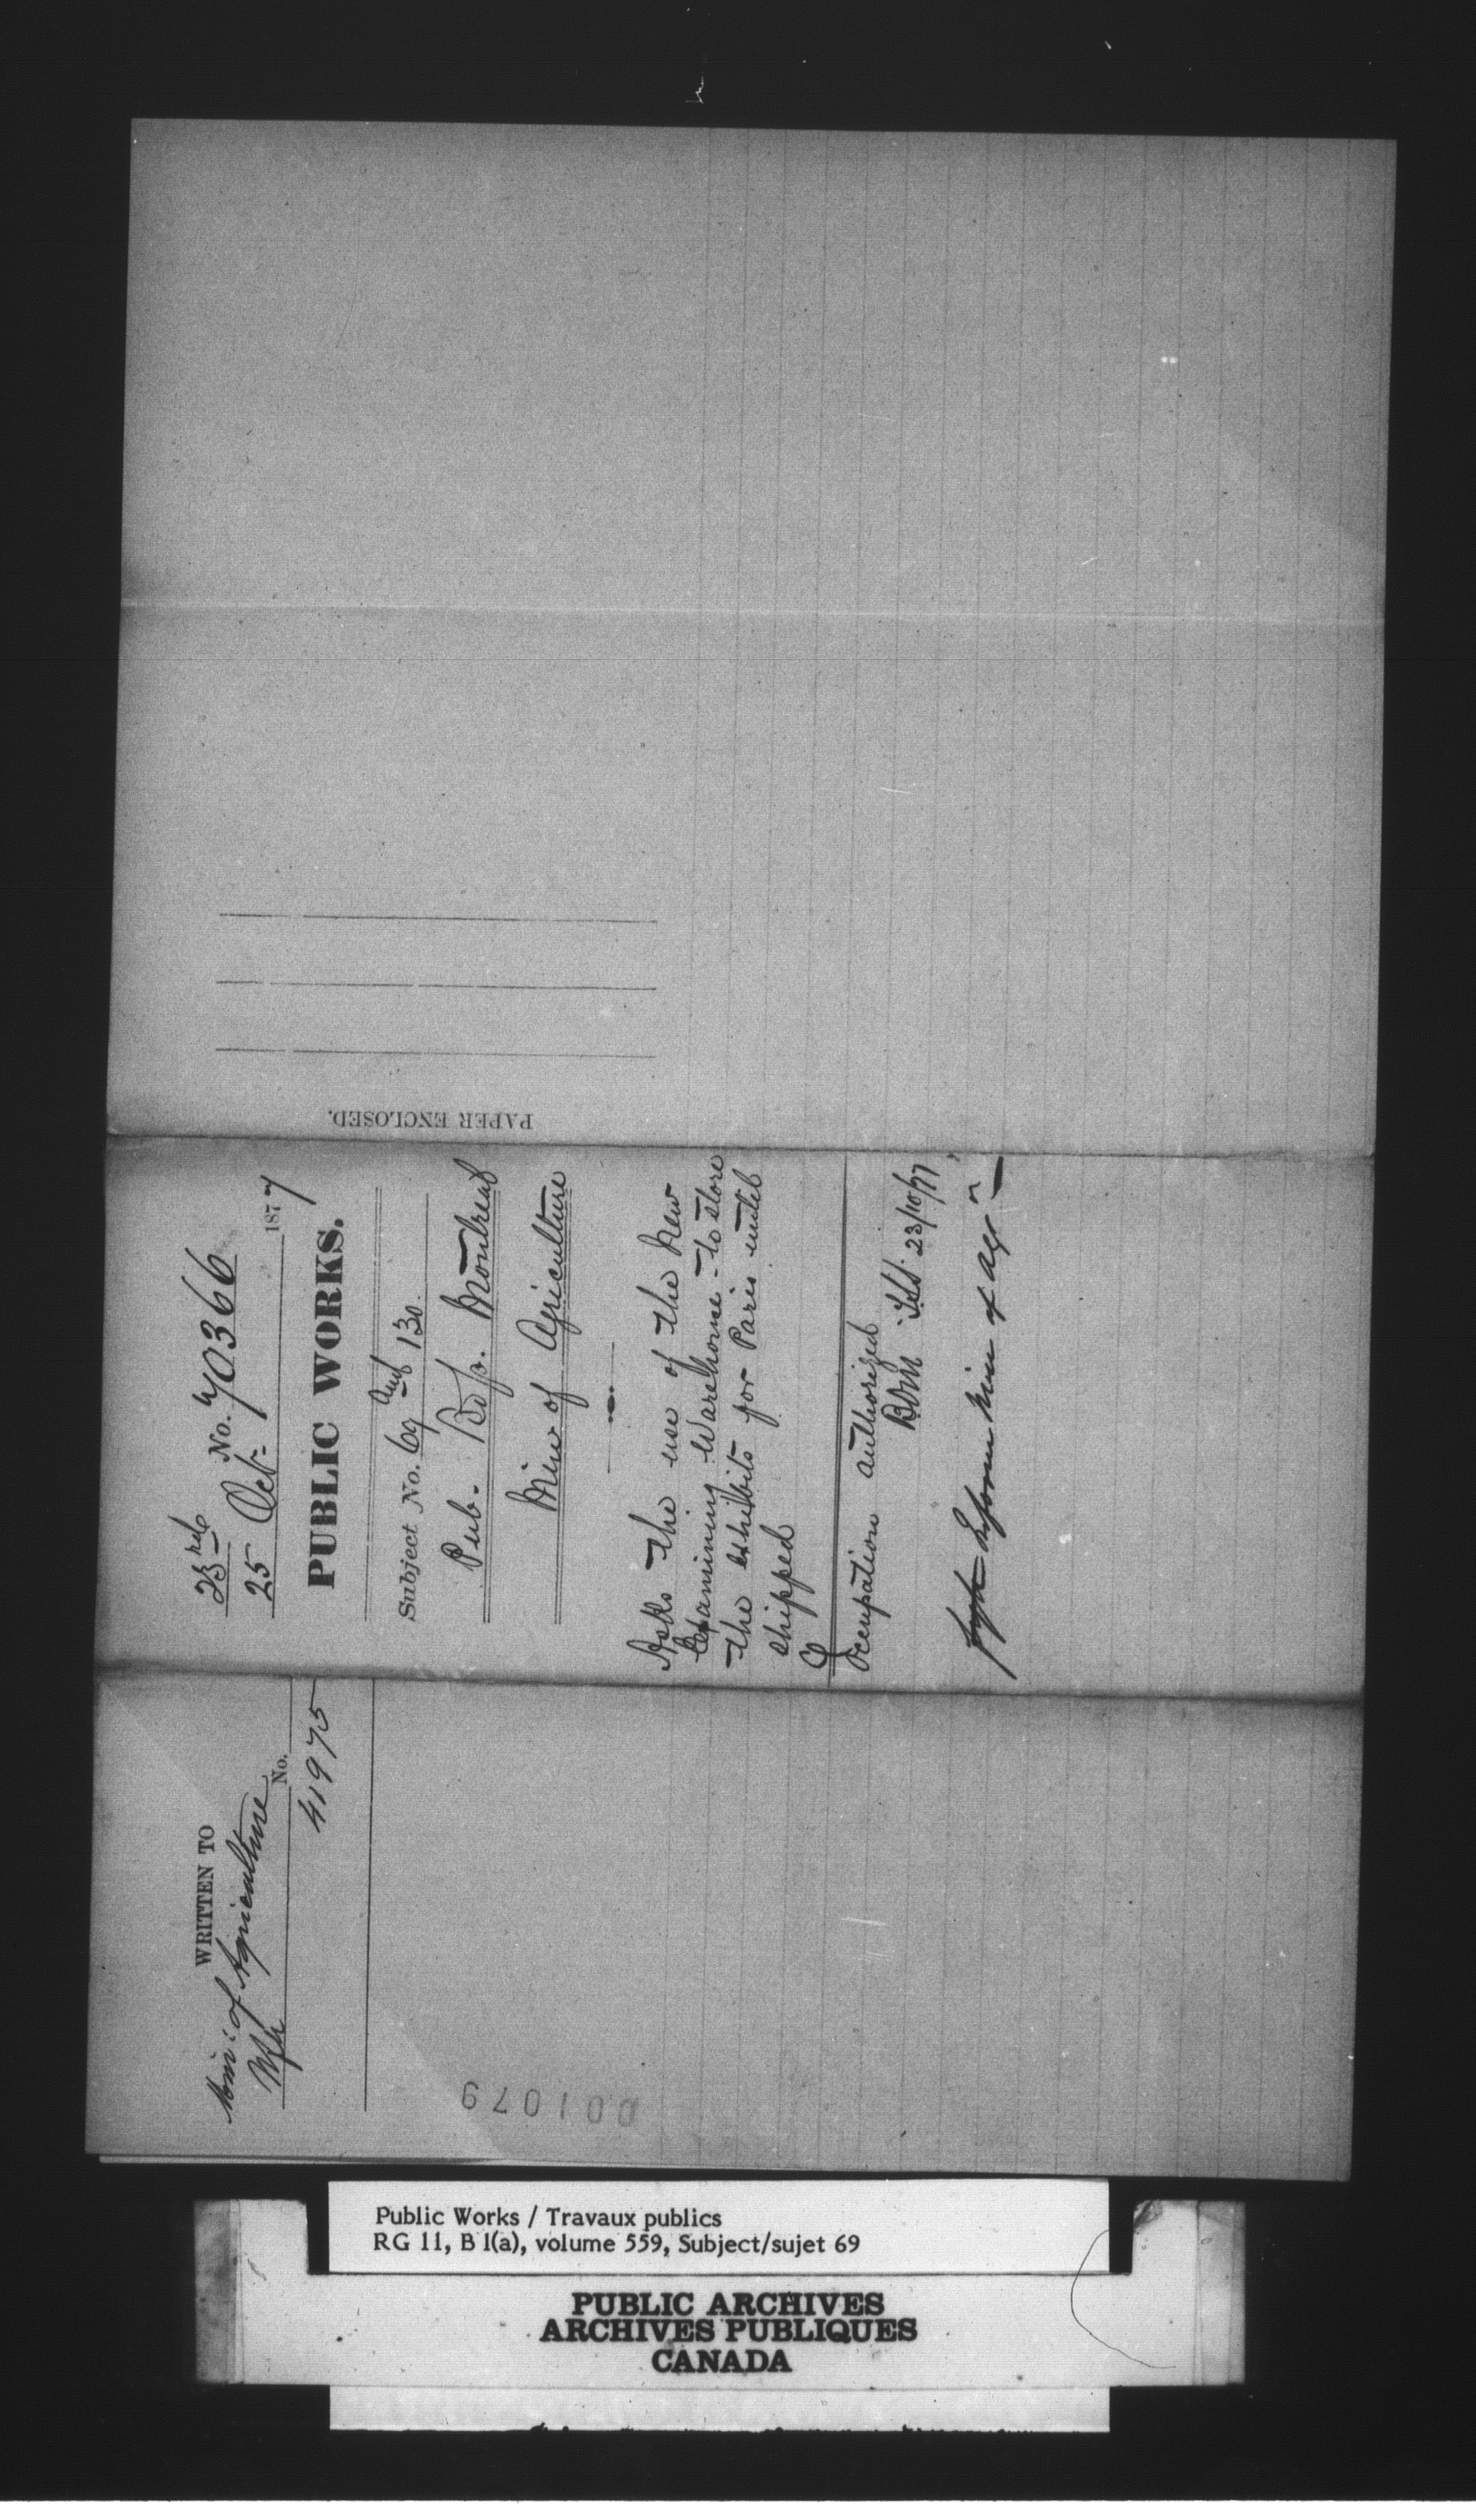 23rd No. 70366
25 Oct- 1877
PUBLIC WORKS.
Subject No. 69 and 130.
Pub. Bdgs. Montreal
Min of Agriculture
Asks the use of the New
Examining Warehouse - to store
the exhibits for Paris until
shipped
Occupation authorized
23/10/77
Inform Min of Agr
PAPER ENCLOSED.
WRITTEN TO
Min: of Agriculture
No.
41975
001079
Public Works / Travaux publics
RG 11, B 1(a), volume 559, Subject/sujet 69
PUBLIC ARCHIVES
ARCHIVES PUBLIQUES
CANADA